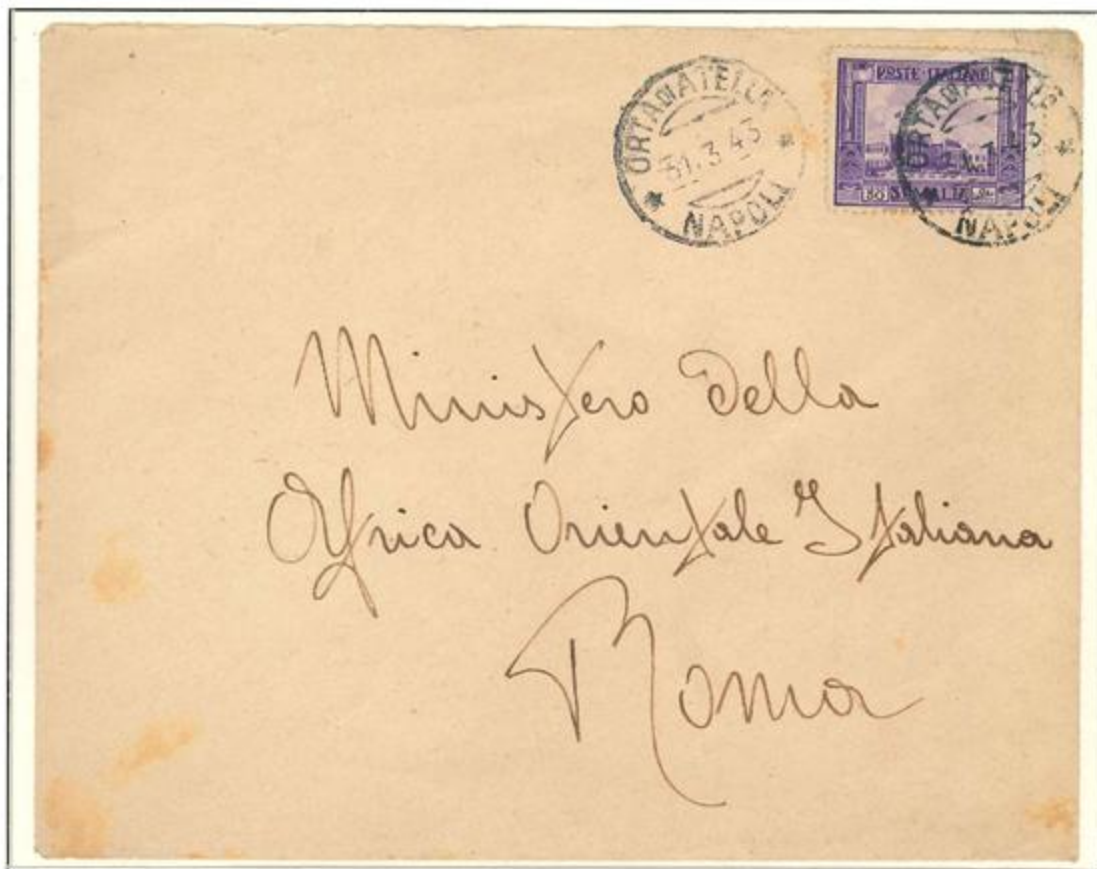 ORTADIATELLA
31.3.43
NAPOLI
POSTE · ITALIANE
SOMALIA
NAPOLI
Ministero della
Africa Orientale Italiana
Roma